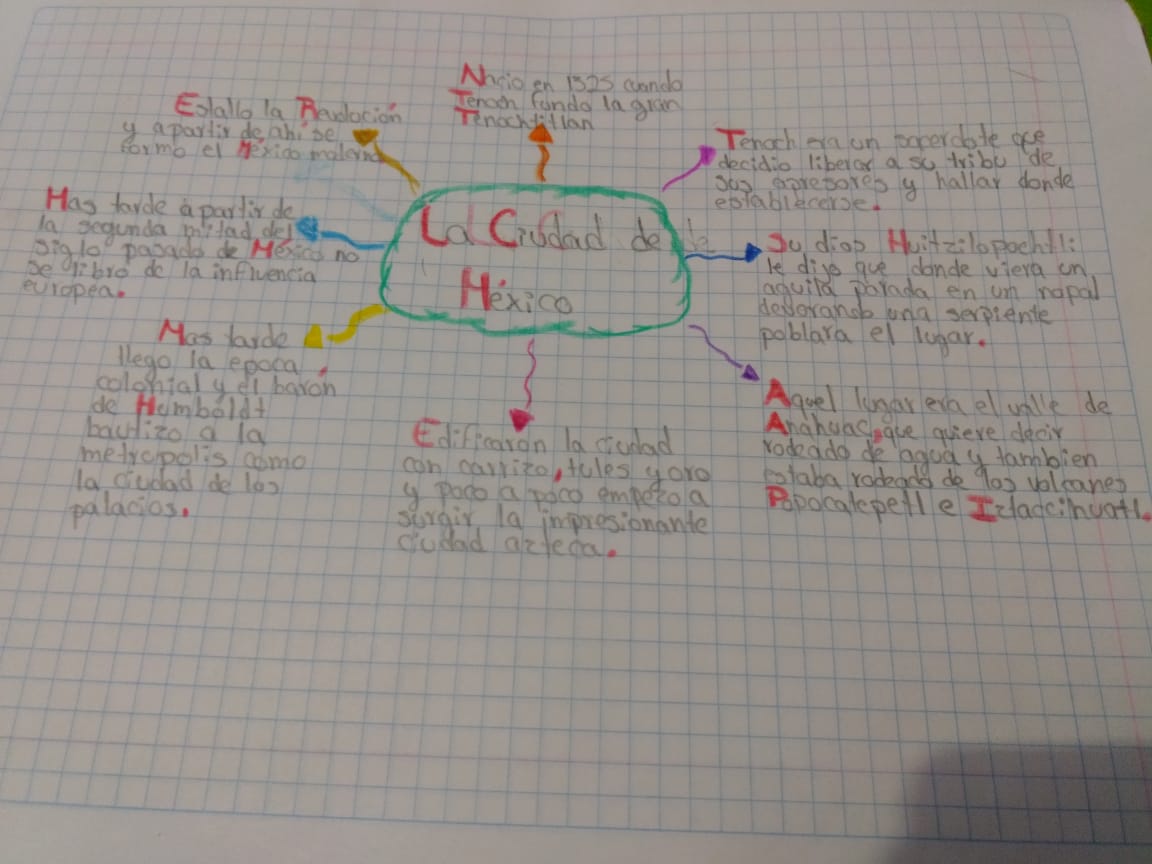 La Ciudad de
México
Nacio en 1325 cuando
Tenoch fundo la gran
Tenochtitlan
Tenoch era un sacerdote que
decidio liberar a su tribu de
sus opresores y hallar donde
establecerse.
Su dios Huitzilopochtli:
le dijo que donde viera un
aguila parada en un nopal
devorando una serpiente
poblara el lugar.
Aquel lugar era el valle de
Anáhuac, que quiere decir
rodeado de agua y tambien
estaba rodeado de los volcanes
Popocatepetl e Iztaccihuatl.
Edificaron la ciudad
con carrizo, tules y oro
y poco a poco empezo a
surgir la impresionante
ciudad azteca.
Mas tarde
llego la epoca
colonial y el barón
de Humboldt
bautizo a la
metropolis como
la ciudad de los
palacios.
Mas tarde a partir de
la segunda mitad del
siglo pasado de México no
se libro de la influencia
europea.
Estallo la Revolución
y a partir de ahi se
formo el México moderno